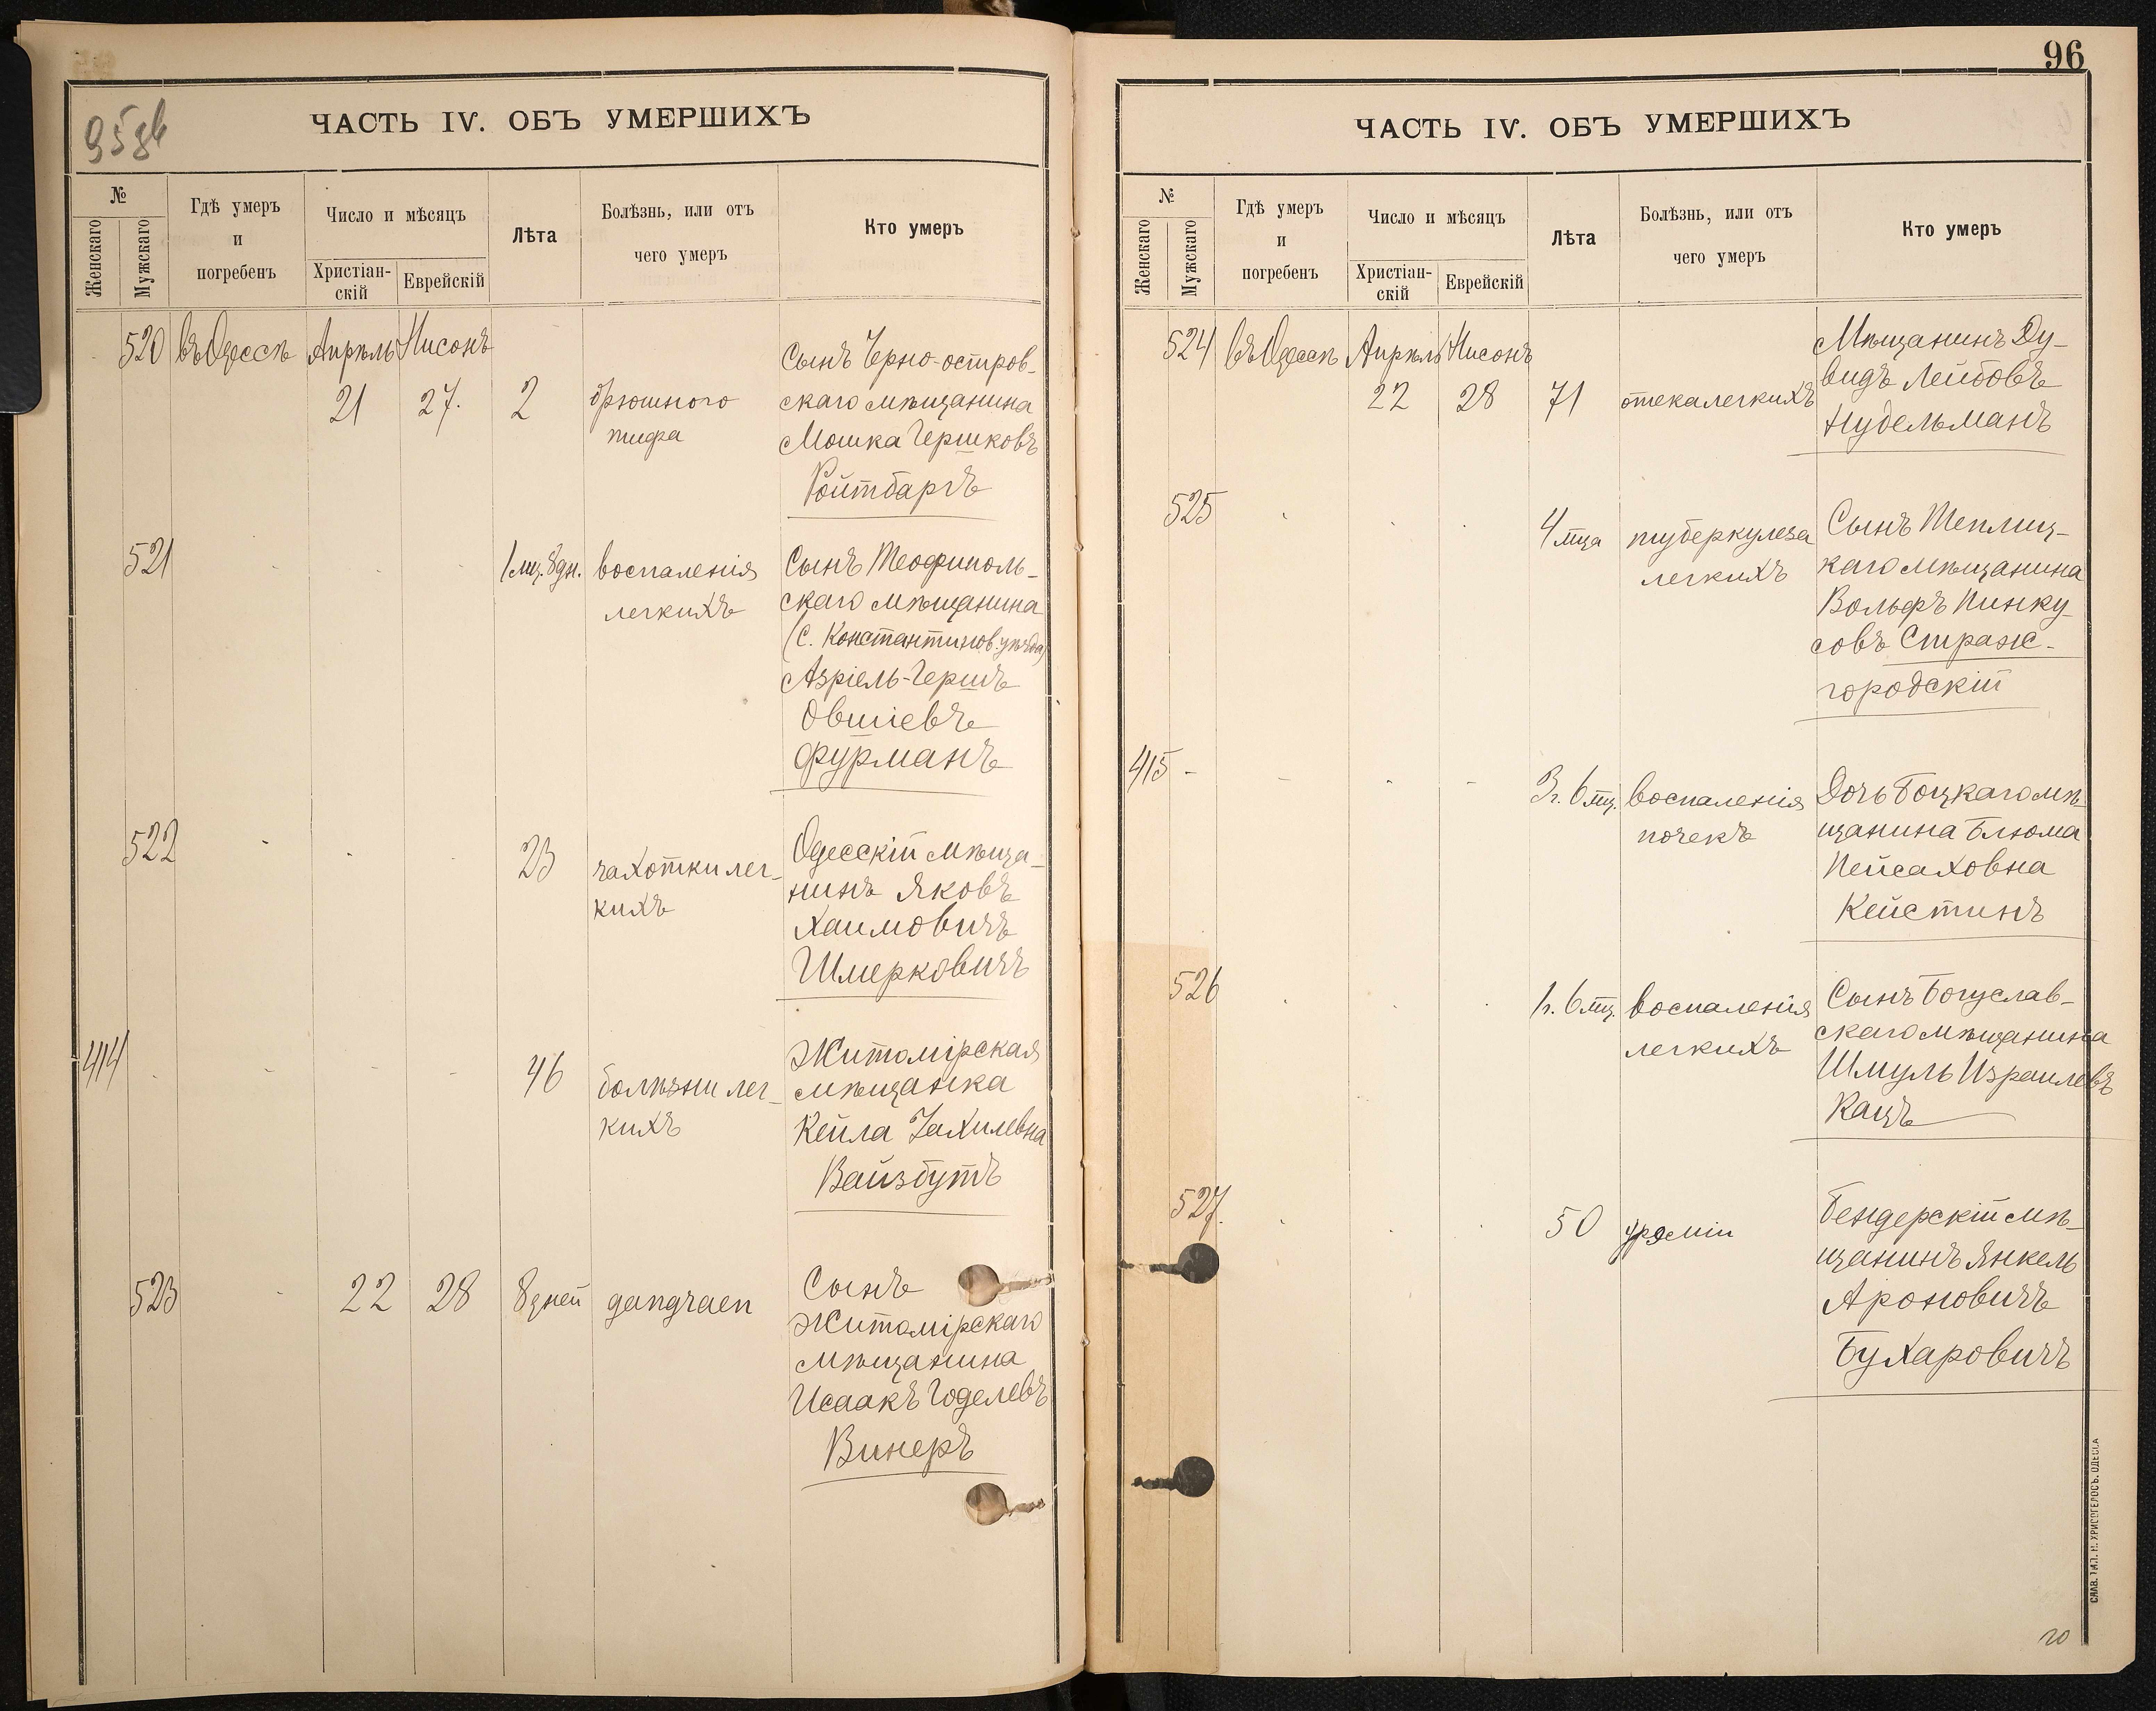 95 об
ЧАСТЬ IV. ОБЪ УМЕРШИХЪ
№
Женскаго
Мужскаго
Гдѣ умеръ
и
погребенъ
Число и мѣсяцъ
Христіан-
скій
Еврейскій
Лѣта
Болѣзнь, или отъ
чего умеръ
Кто умеръ
520 въ Одессѣ Апрѣль Нисонъ
21 27. 2 брюшного
тифа
Сынъ Черно-остров-
скаго мѣщанина
Мошка Гершковъ
Ройтбаргъ
521
1 мц. 8 дн. воспаленія
легкихъ
Сынъ Теофиполь-
скаго мѣщанина
(С. Константинов. уѣзда)
Азріель-Гершъ
Овшіевъ
Фурманъ
522
23 чахотки лег-
кихъ
Одесскій мѣща-
нинъ Яковъ
Хаимовичъ
Шмерковичъ
414
46 болѣзни лег-
кихъ
Житомірская
мѣщанка
Кейла Захилевна
Вайзбутъ
523 22 28 8 дней gangraen
Сынъ
Житомірскаго
мѣщанина
Исаакъ Годелевъ
Винеръ
96
ЧАСТЬ IV. ОБЪ УМЕРШИХЪ
№
Женскаго
Мужскаго
Гдѣ умеръ
и
погребенъ
Число и мѣсяцъ
Христіан-
скій
Еврейскій
Лѣта
Болѣзнь, или отъ
чего умеръ
Кто умеръ
524 въ Одессѣ Апрѣль Нисонъ
22 28 71 отека легкихъ
Мѣщанинъ Ду-
видъ Лейбовъ
Нудельманъ
525
4 мца туберкулеза
легкихъ
Сынъ Теплиц-
каго мѣщанина
Вольфъ Пинку-
совъ Страж-
городскій
415 -
3 г. 6 мц. воспаленія
почекъ
Дочь Боцкаго мѣ-
щанина Блюма
Пейсаховна
Кейстинъ
526
1 г. 6 мц. воспаленія
легкихъ
Сынъ Богуслав-
скаго мѣщанина
Шмуль Израилевъ
Кацъ
527.
50 уреміи
Бендерскій мѣ-
щанинъ Янкель
Ароновичъ
Бухаровичъ
СЛАВ. ТИП. Н. ХРИСОГЕЛОСЪ. ОДЕССА